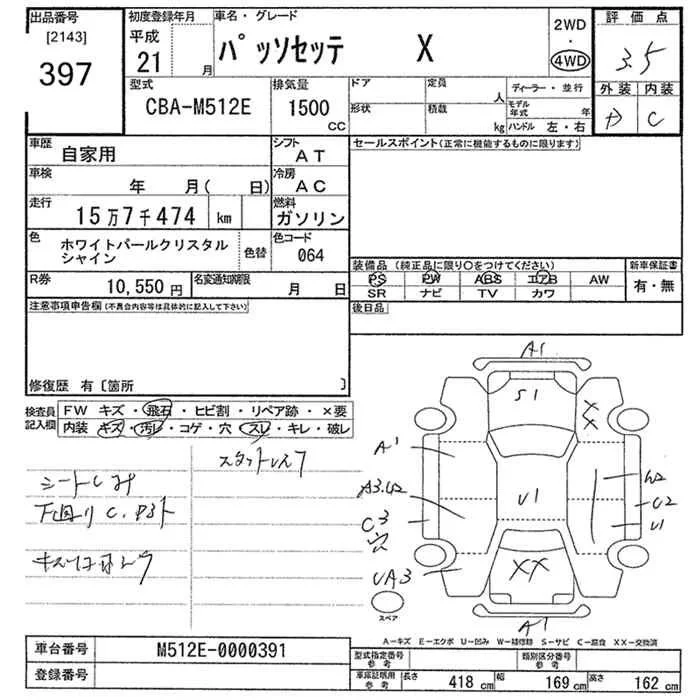 出品番号 初度登録年月 車名・グレード 2WD 評価点
[2143] 平成 ・
397 21 月 パッソセッテ X 4WD 3.5
型式 排気量 ドア 定員 人 ディーラー・並行 外装 内装
CBA-M512E 1500 cc 形状 積載 kg モデル年式 年 D C
ハンドル 左・右
車歴 自家用 シフト AT セールスポイント(正常に機能するものに限ります)
車検 年 月( 日) 冷房 AC
走行 15万7千474 km 燃料 ガソリン
色 ホワイトパールクリスタル 色替 色コード 装備品 (純正品に限り○をつけてください) 新車保証書
シャイン 064 PS PW ABS エアB AW 有・無
R券 10,550円 名変通知期限 月 日 SR ナビ TV カワ
注意事項申告欄(不具合内容等は具体的に記入して下さい) 後日品
修復歴 有〔箇所 〕
検査員 FW キズ・飛石・ヒビ割・リペア跡・×要
記入欄 内装 キズ・汚レ・コゲ・穴・スレ・キレ・破レ
スタットレス
シートシミ
下回り C.
A1
S1
A1
A3.U2
U1
W2
C2
U1
C3
UA3
XX
A1
スペア
A-キズ E-エクボ U-凹み W-補修跡 S-サビ C-腐食 XX-交換済
車台番号 M512E-0000391 型式指定番号 類別区分番号
参考 参考
登録番号 車庫証明用 長さ 418 cm 幅 169 cm 高さ 162 cm
参考